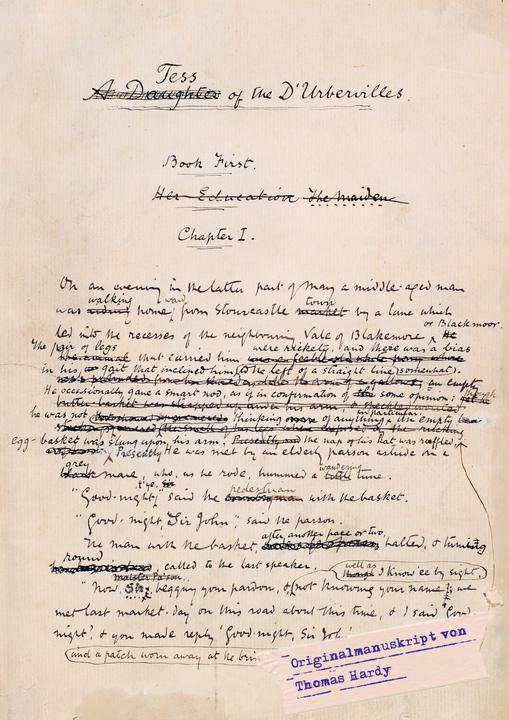 Tess
A Daughter of the D'Urbervilles.
Book First.
Her Education The Maiden
Chapter I.
On an evening in the latter part of May a middle-aged man
walking ward town
was home from Stourcastle market by a lane which
led into the recesses of the neighbouring Vale of Blakemore
or Blackmoor.
The pair of legs were rickety, and there was a bias
that carried him
in his gait that inclined him to the left of a straight line somewhat.
an empty
He occasionally gave a smart nod, as if in confirmation of some opinion; though
he was not thinking of anything in particular. An empty
egg-basket was slung upon his arm; the nap of his hat was ruffled
Presently he was met by an elderly parson astride on a
grey wandering
mare, who, as he rode, hummed a tune.
pedestrian
"Good-night," said the with the basket.
"Good-night, Sir John," said the parson.
after another pace or two,
The man with the basket halted, & turning
round
, called to the last speaker.
well as I know ee by sight,
maister Parson,
"Now, Sir, begging your pardon, & not knowing your name; we
met last market-day on this road about this time, & I said 'Good
night,' & you made reply 'Good-night, Sir Joh
and a patch worn away at the brim
Originalmanuskript von
Thomas Hardy